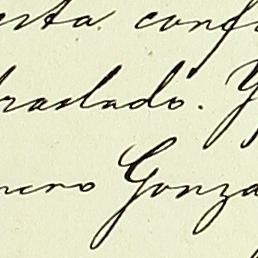 esta conf
traslado. Y
nero Gonza